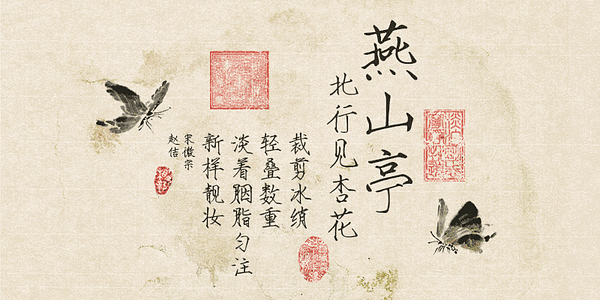 燕山亭
北行见杏花
裁剪冰绡
轻叠数重
淡着胭脂匀注
新样靓妆
宋徽宗
赵佶